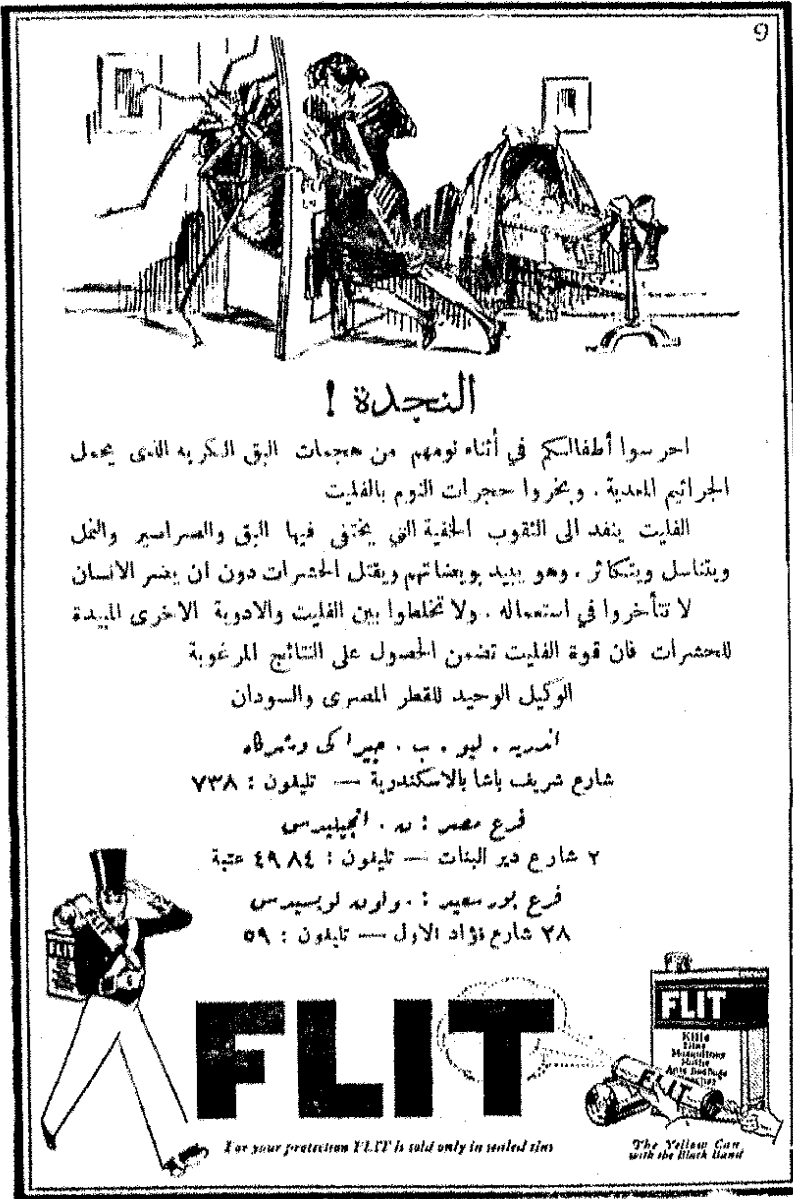 9
النجدة !
احرسوا أطفالكم في أثناء نومهم من هجمات البق الكريه الذى يحمل
الجراثيم المعدية . وبخروا حجرات النوم بالفليت
الفليت ينفد الى الثقوب الخفية التي يختفى فيها البق والصراصير والنمل
ويتناسل ويتكاثر . وهو يبيد بويضاتهم ويقتل الحشرات دون ان يضر الانسان
لا تتأخروا في استعماله . ولا تخلطوا بين الفليت والادوية الاخرى المبيدة
للحشرات فان قوة الفليت تضمن الحصول على النتائج المرغوبة
الوكيل الوحيد للقطر المصرى والسودان
اندريه . ليو . ب . جيراكى وشركاه
شارع شريف باشا بالاسكندرية — تليفون : ٧٣٨
فرع مصر : ن . انجيليدس
٢ شارع دير البنات — تليفون : ٨٤ ٤٩ عتبة
فرع بورسعيد :
٢٨ شارع فؤاد الاول — تليفون : ٥٩
FLIT
FLIT
FLIT
FLIT
Kills
Flies
Mosquitoes
Moths
Ants Bedbugs
FLIT
For your protection FLIT is sold only in sealed tins
The Yellow Can
with the Black Band